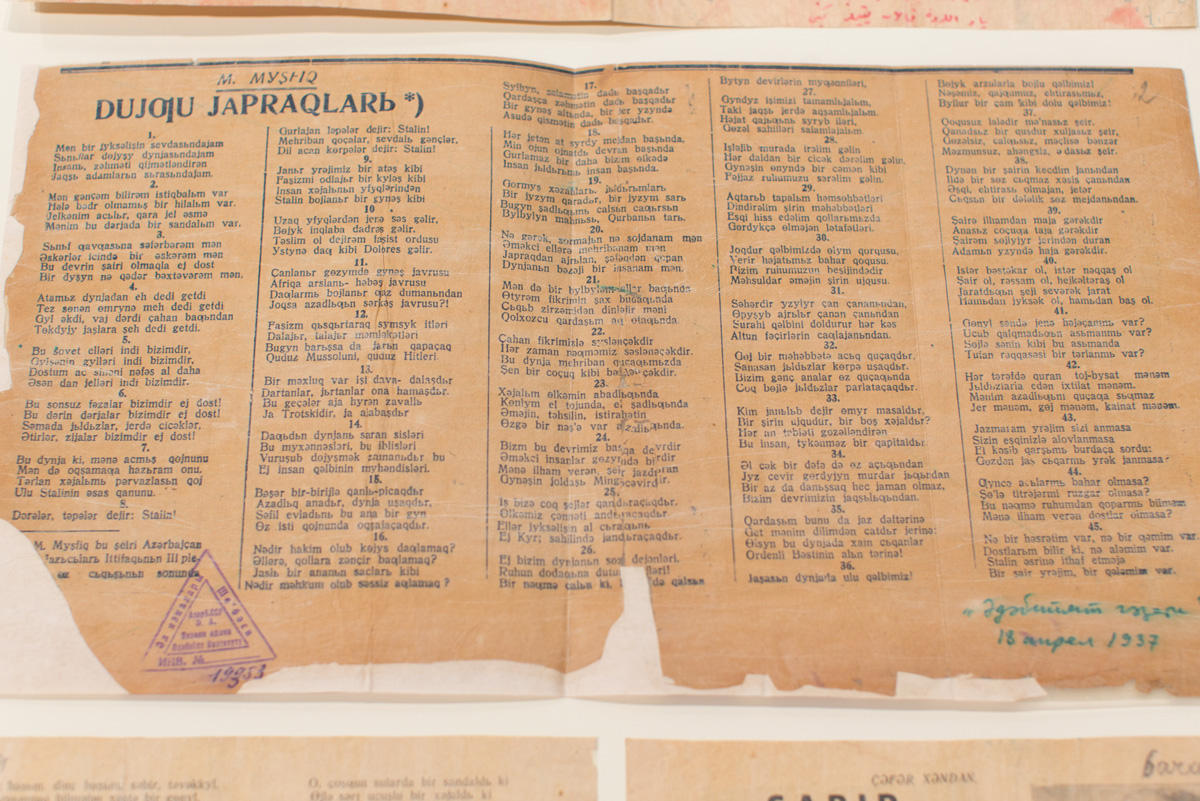 M. MYŞFIQ
DUJƢU JAPRAQLARЬ *)
1.
Mən bir jyksəlişin sevdasьndajam
Sьnьflar dojyşy dynjasьndajam
Insanь, zəhməti qiymətləndirən
Jaqşь adamlarьn sьrasьndajam.
2.
Mən gəncəm bilirəm istiqbalьm var
Hələ bədr olmamьş bir hilalьm var.
Jelkənim acьlьr, qara jel əsmə
Mənim bu dərjada bir sandalьm var.
3.
Sьnьf qavƣasьna səfərbərəm mən
Əskərlər icində bir əskərəm mən
Bu devrin şairi olmaqla ej dost
Bir dysyn nə qədər bəxtəvərəm mən.
4.
Atamьz dynjadan eh dedi getdi
Tez sənən əmrynə meh dedi getdi
Gyl əkdi, vaj dərdi çahan baƣьndan
Təkdyjy jaşlara şeh dedi getdi.
5.
Bu şovet elləri indi bizimdir,
zylləri indi bizimdir,
Dostum ac sinəni nəfəs al daha
Əsən dan jelləri indi bizimdir.
6.
Bu sonsuz fəzalar bizimdir ej dost!
Bu dərin dərjalar bizimdir ej dost!
Səmada jьldьzlar, jerdə cicəklər,
Ətirlər, zijalar bizimdir ej dost!
7.
Bu dynja ki, mənə acmьş qojnunu
Mən də oqşamaƣa hazьram onu.
Tərlan xəjalьmь pərvazlasьn qoj
Ulu Stalinin əsas qanunu.
8.
Dərələr, təpələr dejir: Stalin!
M. Myşfiq bu şeiri Azərbajçan
Jazьcьlarь Ittifaqьnьn III ple-
cьqьşьnьn sonunda
Gurlajan ləpələr dejir: Stalin!
Mehriban qoçalar, sevdalь gənçlər,
Dil acan kərpələr dejir: Stalin!
9.
Janьr yrəjimiz bir atəş kibi
Faşizmi odlajьr bir kyləş kibi
Insan xəjalьnьn yfyqlərindən
Stalin bojlanьr bir gynəş kibi
10
Uzaq yfyqlərdən jerə səs gəlir,
Bəjyk inqlaba dadrəs gəlir.
Təslim ol dejirəm faşist ordusu
Ystynə daƣ kibi Dolores gəlir.
11.
Çanlanьr gezymdə gynəş javrusu
Afriqa arslanь- həbəş javrusu
Daƣlarmь bojlanьr qaz dumanьndan
Joqsa azadlьƣьn şərkəş javrusu?!
12.
Faşizm qьşqьrtaraq symsyk itləri
Dalajьr, talajьr məmləkətləri
Bugyn barьşsa da jarьn qapaçaq
Quduz Mussoluni, quduz Hitleri.
13.
Bir məxluq var işi dava- dalaşdьr
Dartanlar, jьrtanlar ona hamaşdьr.
Bu geçələr aja hyrən zavallь
Ja Trotskidir, ja alabaşdьr
14.
Daƣьdьn dynjanь saran sisləri
Bu myxənnəsləri, bu iblisləri
Vuruşub dojyşmək zamanьdьr bu
Ej insan qəlbinin myhəndisləri.
15.
Bəşər bir-birijlə qanlь-pьcaqdьr
Azadlьq anadьr, dynja uşaqdьr,
Səfil evladьnь bu ana bir gyn
Əz isti qojnunda oqşajaçaqdьr.
16.
Nədir hakim olub kəjys daƣlamaq?
Əllərə, qollara zənçir baƣlamaq?
Jaslь bir ananьn saclarь kibi
Nədir məhkum olub səssiz aƣlamaq?
17.
Sylhyn, səlamətin dadь başqadьr
Qardaşça zəhmətin dadь başqadьr
Bir gynəş altьnda, bir jer yzyndə
Asudə qismətin dadь başqadьr.
18.
Hər jetən at syrdy mejdan başьnda,
Min ojun ojnatdь devran başьnda
Gurlamaz bir daha bizim əlkədə
Insan jьldьrьmь insan başьnda.
19.
Gərmyş xəzanlarь, jьldьrьmlarь
Bir jyzym qaradьr, bir jyzym sarь
Bugyn şadlьƣьmь calsьn caƣьrsьn
Bylbylyn mahnьsь, Qurbanьn tarь.
20.
Nə gərək, sormajьn nə sojdanam mən
Əməkci ellərə mehribanam mən
Japraqdan ajrьlan, şələdən qopan
Dynjanьn bəzəji bir insanam mən.
21.
Mən də bir bylbyləm ellər baƣьnda
Ətyrəm fikrimin şax budaƣьnda
Cьqьb zirzəmidən dinləjir məni
Qolxozcu qardaşьm aƣ otaƣьnda.
22.
Çahan fikrimizlə şysləneçəkdir.
Hər zaman nəqmimiz səsləneçəkdir.
Bu dynja mehriban quçaƣьmьzda
Şen bir coçuq kibi bəsləneçəkdir.
23.
Xəjalьm əlkəmin abadlьƣьnda
Kənlym el tojunda, el şadlьƣьnda
Əməjin, təhsilin, istirahətin
Əzgə bir nəş'ə var azadlьƣьnda.
24.
Bizm bu devrimiz başqa devrdir
Əməkci insanlar gezymdə birdir
Mənə ilham verən, şeir jazdьran
Gynəşin joldaşь Mingəcəvirdir.
25.
Iş bizə coq şellər qandьraçaqdьr.
Əlkəmiz çənnəti andьraçaqdьr
Ellər jyksəlişin al cьraƣьnь
Ej Kyr; sahilində jandьraçaqdьr.
26.
Ej bizim dynjanьn səz dejənləri.
Ruhun dodaƣьna
Bir nəqmə calьn ki, də qalsьn
Bytyn devirlərin myqənniləri,
27.
Gyndyz işimizi tamamlьjalьm,
Takі jaqşь jerdə aqşamlьjalьm.
Həjat qajьƣьnь syryb iləri,
Gezəl sahilləri salamlьjalьm
28.
Işləjib murada irəlim gəlin
Hər daldan bir cicək dərəlim gəlin.
Gynəşin ənyndə bir cəmən kibi
Fəjjaz ruhumuzu şərəlim gəlin.
29.
Aqtarьb tapalьm həmsohbətləri
Dindirəlim şirin məhəbbətləri
Eşqi hiss edəlim qollarьmьzda
Gərdykçə olməjən lətafətləri.
30.
Joqdur qəlbimizdə əlyn qorqusu,
Verir həjatьmьz bahar qoqusu.
Bizim ruhumuzun beşijindədir
Məhsuldar əməjin şirin ujqusu.
31.
Şəhərdir yzylyr çan çanandan,
Əpyşyb ajrьlьr çanan çanandan
Surahi qəlbini doldurur hər kəs
Altun fəçirlərin caƣlajanьndan.
32.
Goj bir məhəbbətə acьq quçaqdьr,
Sanasan jьldьzlar kərpə uşaqdьr.
Bizim gənç analar əz quçaƣьnda
Coq belə jьldьzlar parlataçaqdьr.
33.
Kim janьlьb dejir əmyr masaldьr,
Bir şirin ujqudur, bir boş xəjaldьr?
Hər an təbiəti gezəlləndirən
Bu insan, tykənməz bir qapitaldьr.
34.
Əl cək bir dəfə də əz açьqьndan
Jyz cevir gərdyjyn murdar jьƣьndan
Bir az da danьşsaq hec jaman olmaz,
Bizim devrimizin jaqşьlьƣьndan.
35.
Qardaşьm bunu da jaz dəftərinə
Get mənim dilimdən catdьr jerinə:
Əlsyn bu dynjada xain cьqanlar
Ordenli Bəstinin alьn tərinə!
36.
Jaşasьn dynjarla ulu qəlbimiz!
Bəjyk arzularla bojlu qəlbimiz!
Nəşəmiz, qajƣьmьz, ehtirasьmьz,
Byllur bir çam kibi dolu qəlbimiz!
37.
Qoqusuz lalədir mə'nasьz şeir,
Qanadsьz bir quşdur xuljasьz şeir,
Gezəlsiz, calƣьsьz, məçlisə bənzər
Məzmunsuz, ahəngsiz, ədasьz şeir.
38.
Dynən bir şairin kecdim janьndan
Ildə bir səz cьqmaz xəsis çanьndan
Əşqi, ehtirası olmajan, jetər
Cьqsьn bir dələlik səz mejdanьndan.
39.
Şairə ilhamdan maja gərəkdir
Anasьz coçuƣa taja gərəkdir
Şairəm səjləjyr jerindən duran
Adamьn yzyndə haja gərəkdir.
40.
Istər bəstəkar ol, istər nəqqaş ol
Şair ol, rəssam ol, hejkəltəraş ol
Jaratdьƣьn şeji sevərək jarat
Hamьdan jyksək ol, hamьdan baş ol.
41.
Gənyl səndə jenə həjəçanmь var?
Uçub qalqmadьƣьn asьmanmь var?
Səjlə nəqmin kibi bu asьmanda
Tutan rəqqasəsi bir tərlanmь var?
42.
Hər tərəfdə quran toj-bysat mənəm
Jьldьzlarla edən ixtilat mənəm.
Mənim azadlьƣь quçaƣa sьƣmaz
Jer mənəm, gej mənəm, kainat mənəm.
43.
Jazmaram yrəjim sizi anmasa
Sizin eşqinizlə alovlanmasa
El kəsib qarşьmь burdaça sordu:
Gezdən jaş cьqarmь yrək janmasa?
44.
Ƣynçə acьlarmь bahar olmasa?
Şə'lə titrəjərmi ruzgar olmasa?
Bu nəqmə ruhumdan qoparmь bilməm
Mənə ilham verən dostlar olmasa?
45.
Nə bir həsrətim var, nə bir qəmim var
Dostlarьm bilir ki, nə aləmim var.
Stalin əsrinə ithaf etməjə
Bir şair yrəjim, bir qələmim var.
2
„Әдәбийјат гәзети"
18 апрел 1937
ИНВ. №
19953
ÇƏFƏR XƏNDAN.
SABIR
O, çoşqun sularda bir sandaldь ki